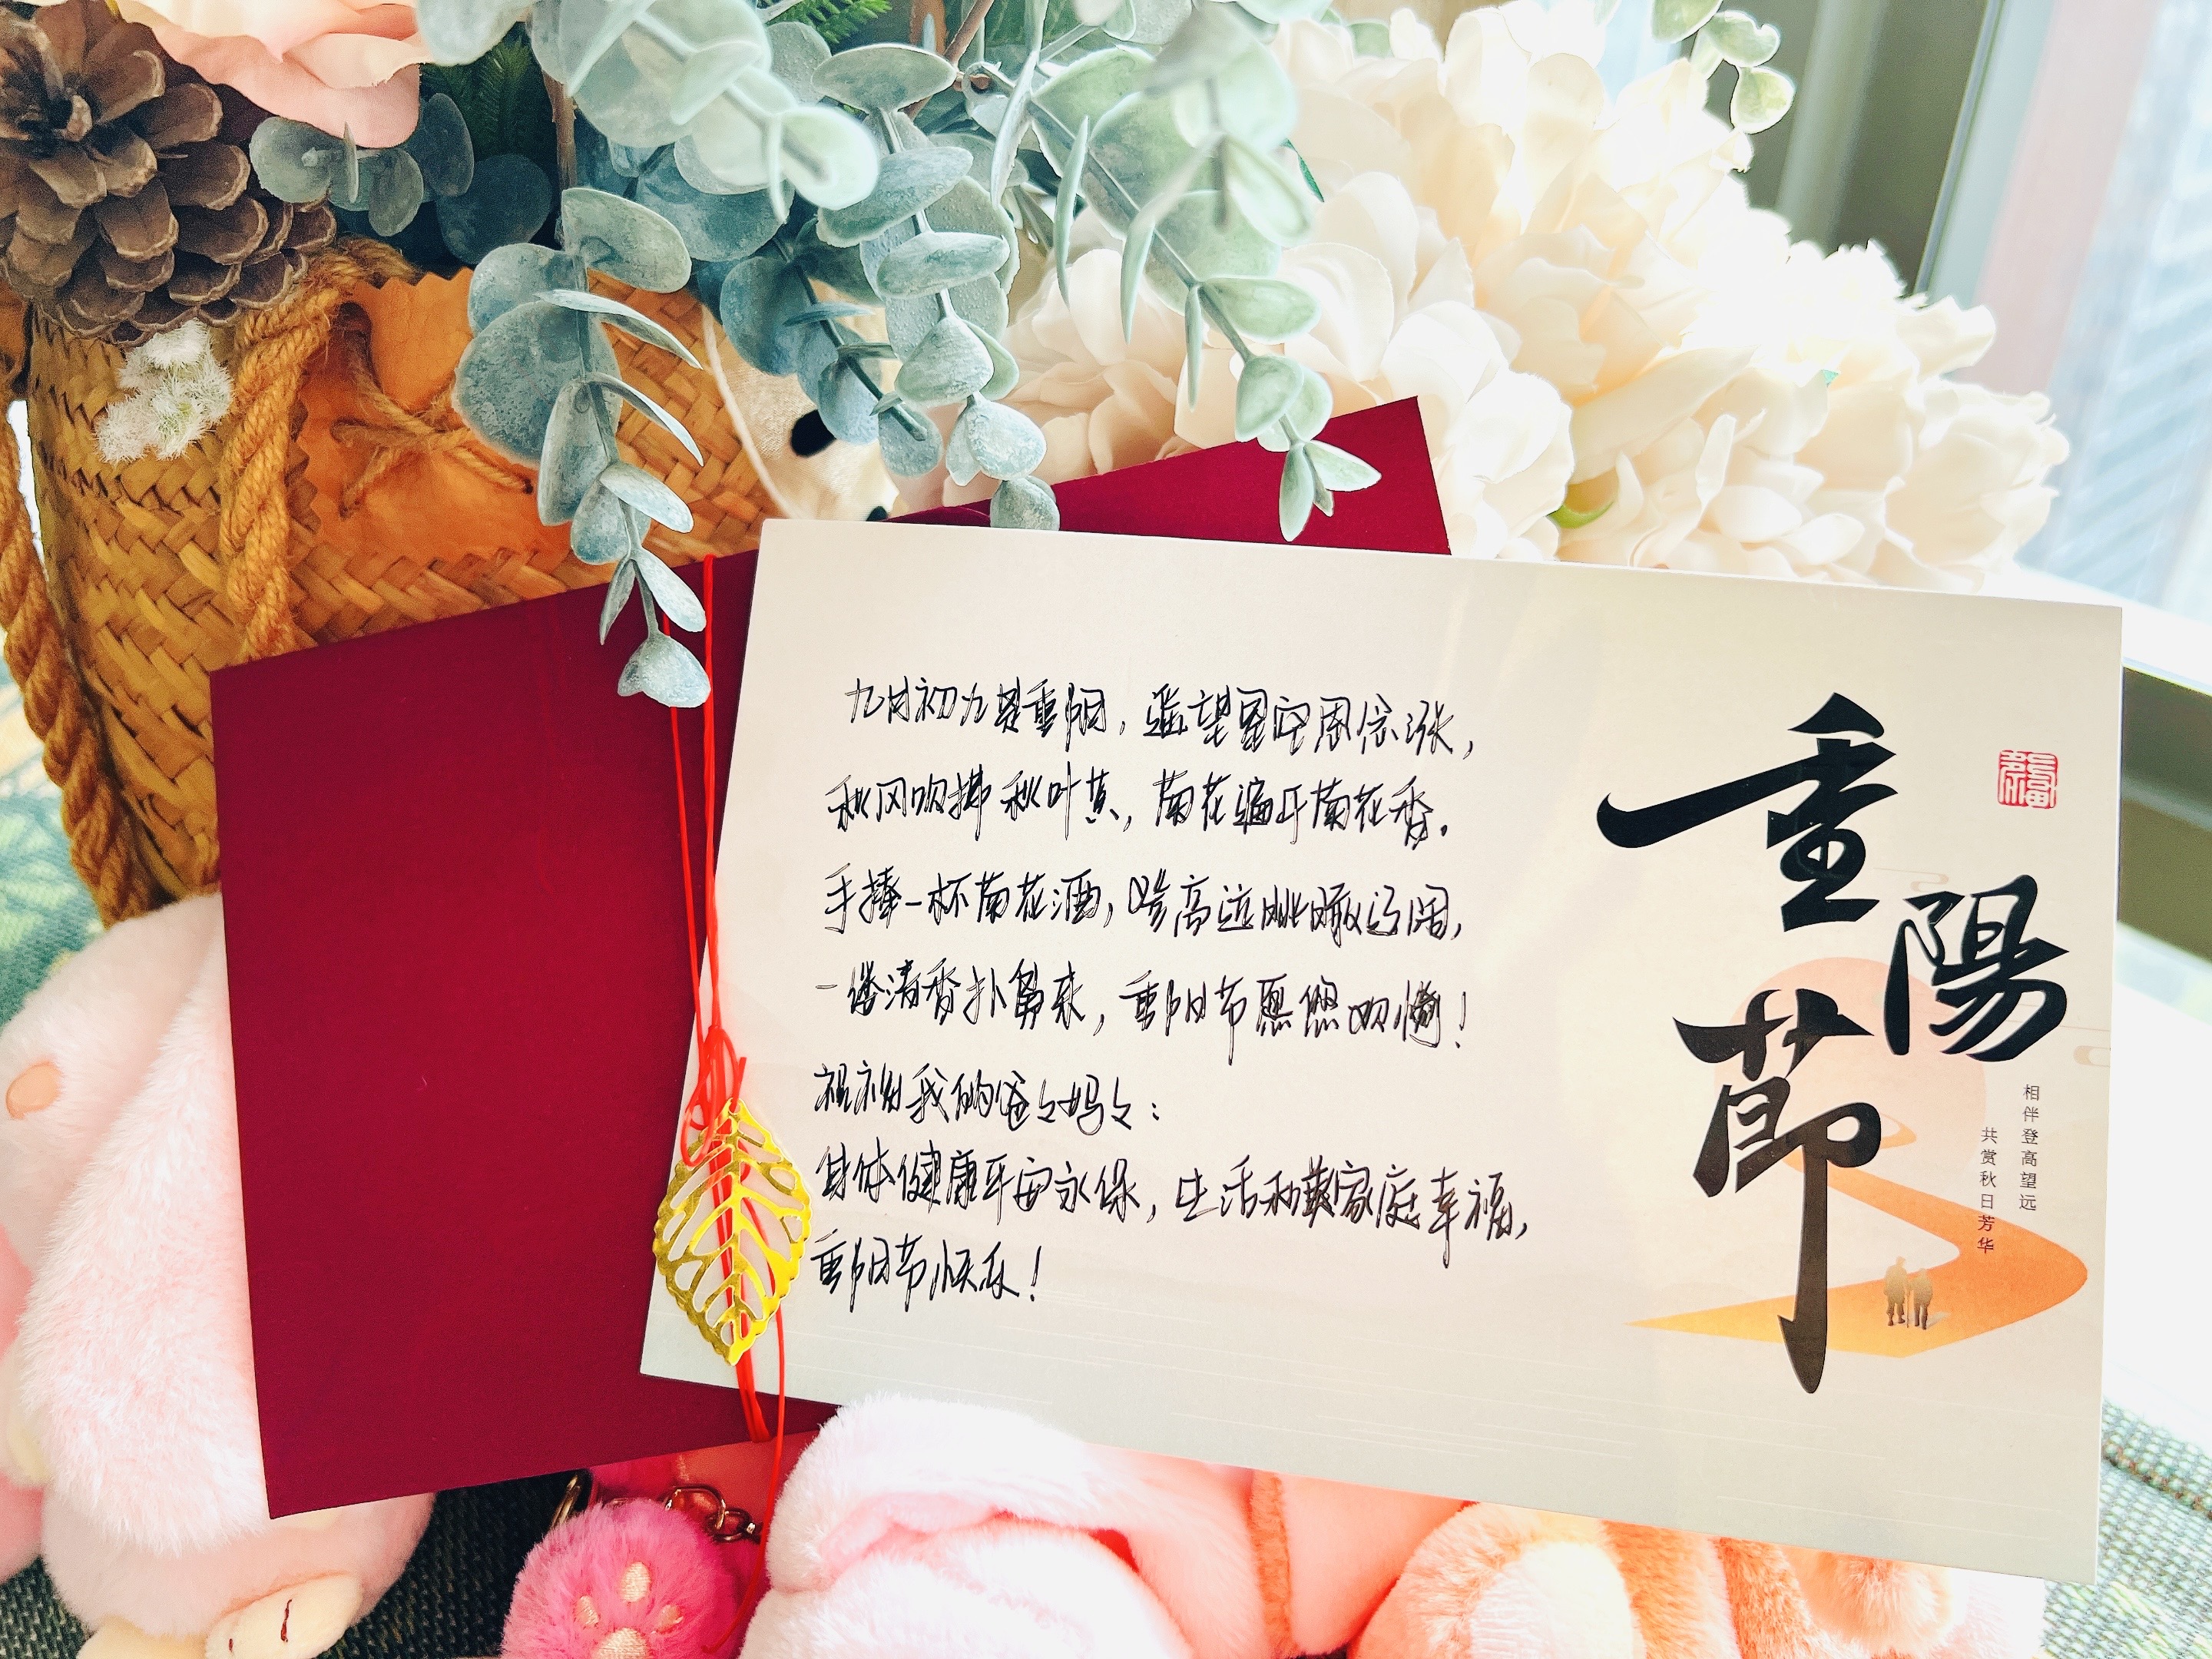 九月初九是重阳，遥望星空思念涨，
秋风吹拂秋叶黄，菊花遍开菊花香。
手捧一杯菊花酒，登高远眺瞰辽阔，
一缕清香扑鼻来，重阳节愿您欢畅！
祝福我的爸爸妈妈：
身体健康平安永保，生活和美家庭幸福，
重阳节快乐！
重陽節
福
相伴登高望远
共赏秋日芳华